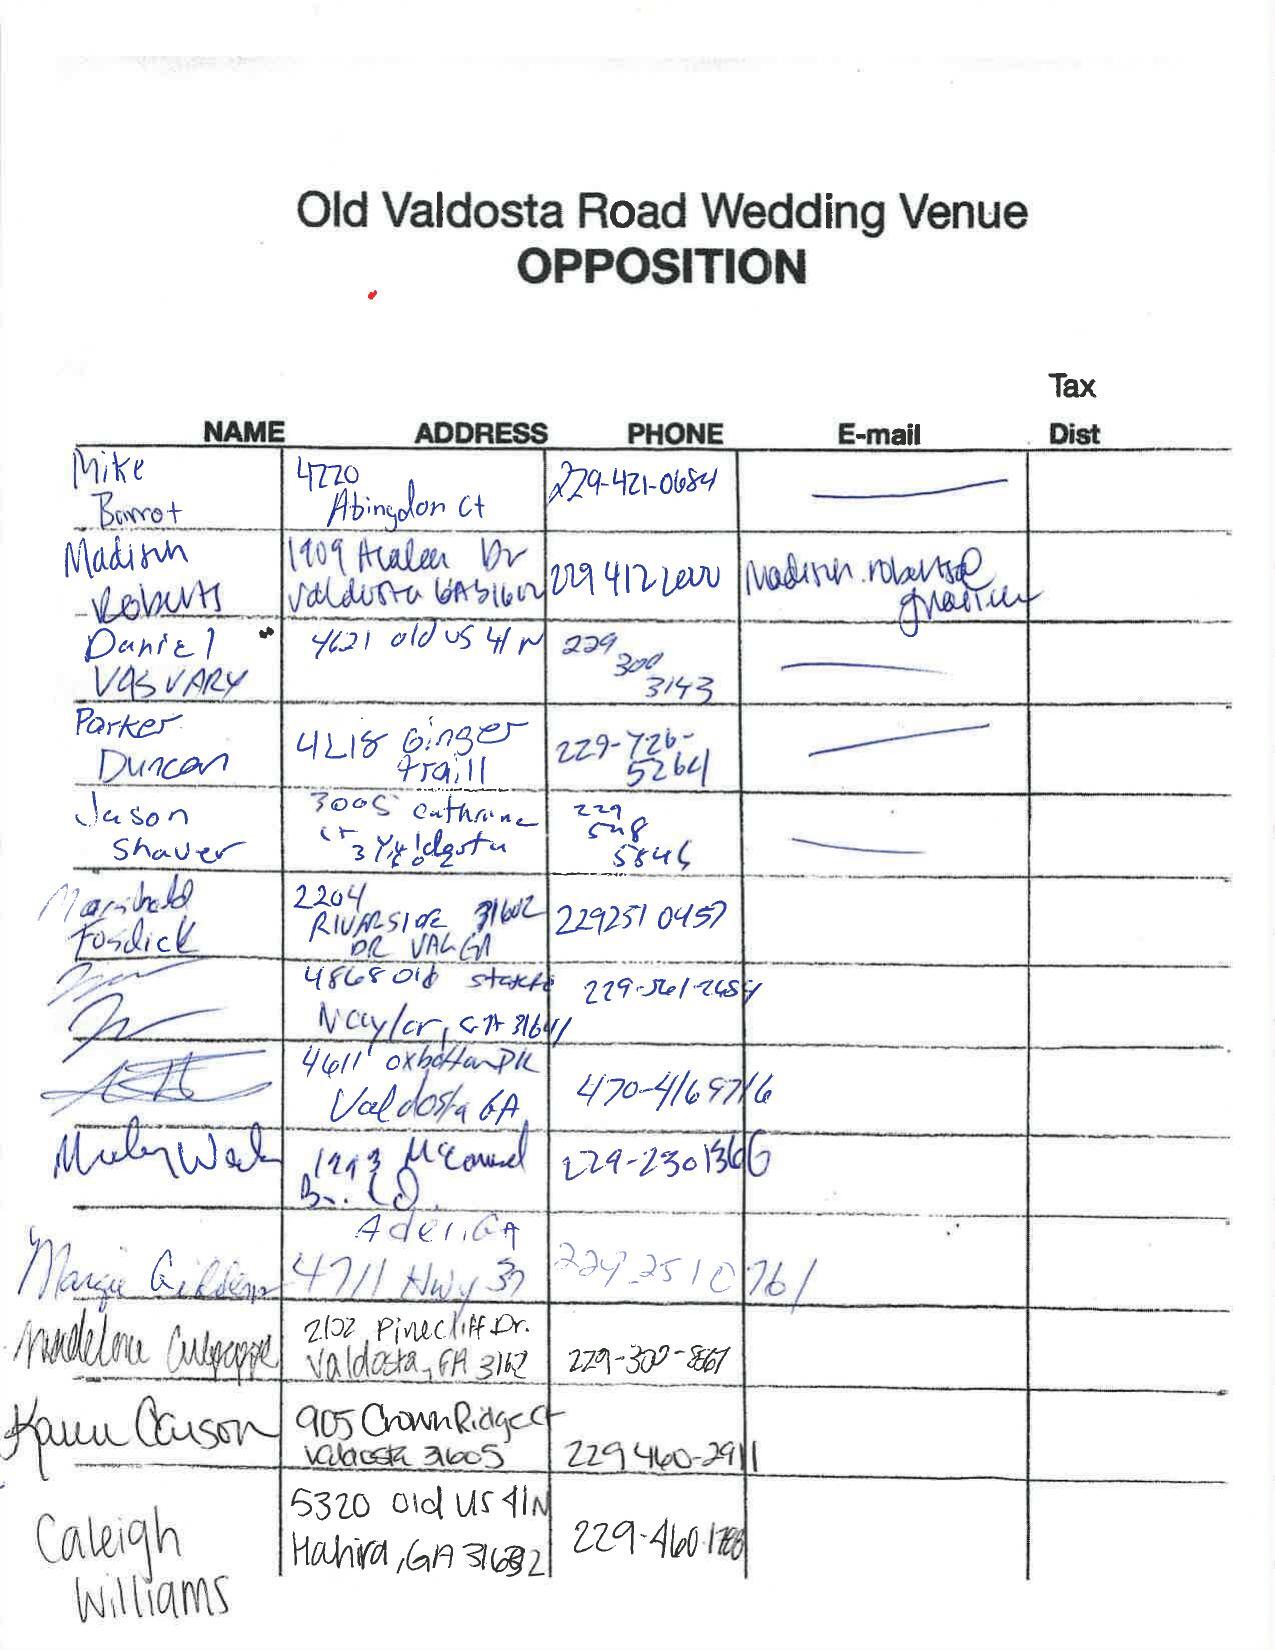 Old Valdosta Road Wedding Venue
OPPOSITION
Tax
NAME ADDRESS PHONE E-mail Dist
Mike
Barrot
4220
Abingdon Ct
229-421-0684
Madison
Roberts
1909 Dr
Valdosta GA 31602
229 412
Madison.roberts@
Daniel
VASVARY
4621 old US 41 N
229
300
3143
Parker
Duncan
4218 Ginger
traill
229-726-
5264
Jason
Shaver
3005 Cathrine
ct
Valdosta
229
548
5846
Fosdick
2204
RIVERSIDE 31602
DR VAL GA
229251 0457
4868 Old
Naylor, GA 31641
229-561-2684
4611 DR
Valdosta GA
470-4169716
1293
229-2301366
Margie
Adel, GA
4711 Hwy 37
229 251 0761
Madelene Culpepper
2102 Pinecliff Dr.
Valdosta, GA 3162
229-300-8867
Karen Carson
905 Crown Ridge Ct
Valdosta 31605
229 460-2911
Caleigh
Williams
5320 Old US 41N
Hahira, GA 31632
229-460